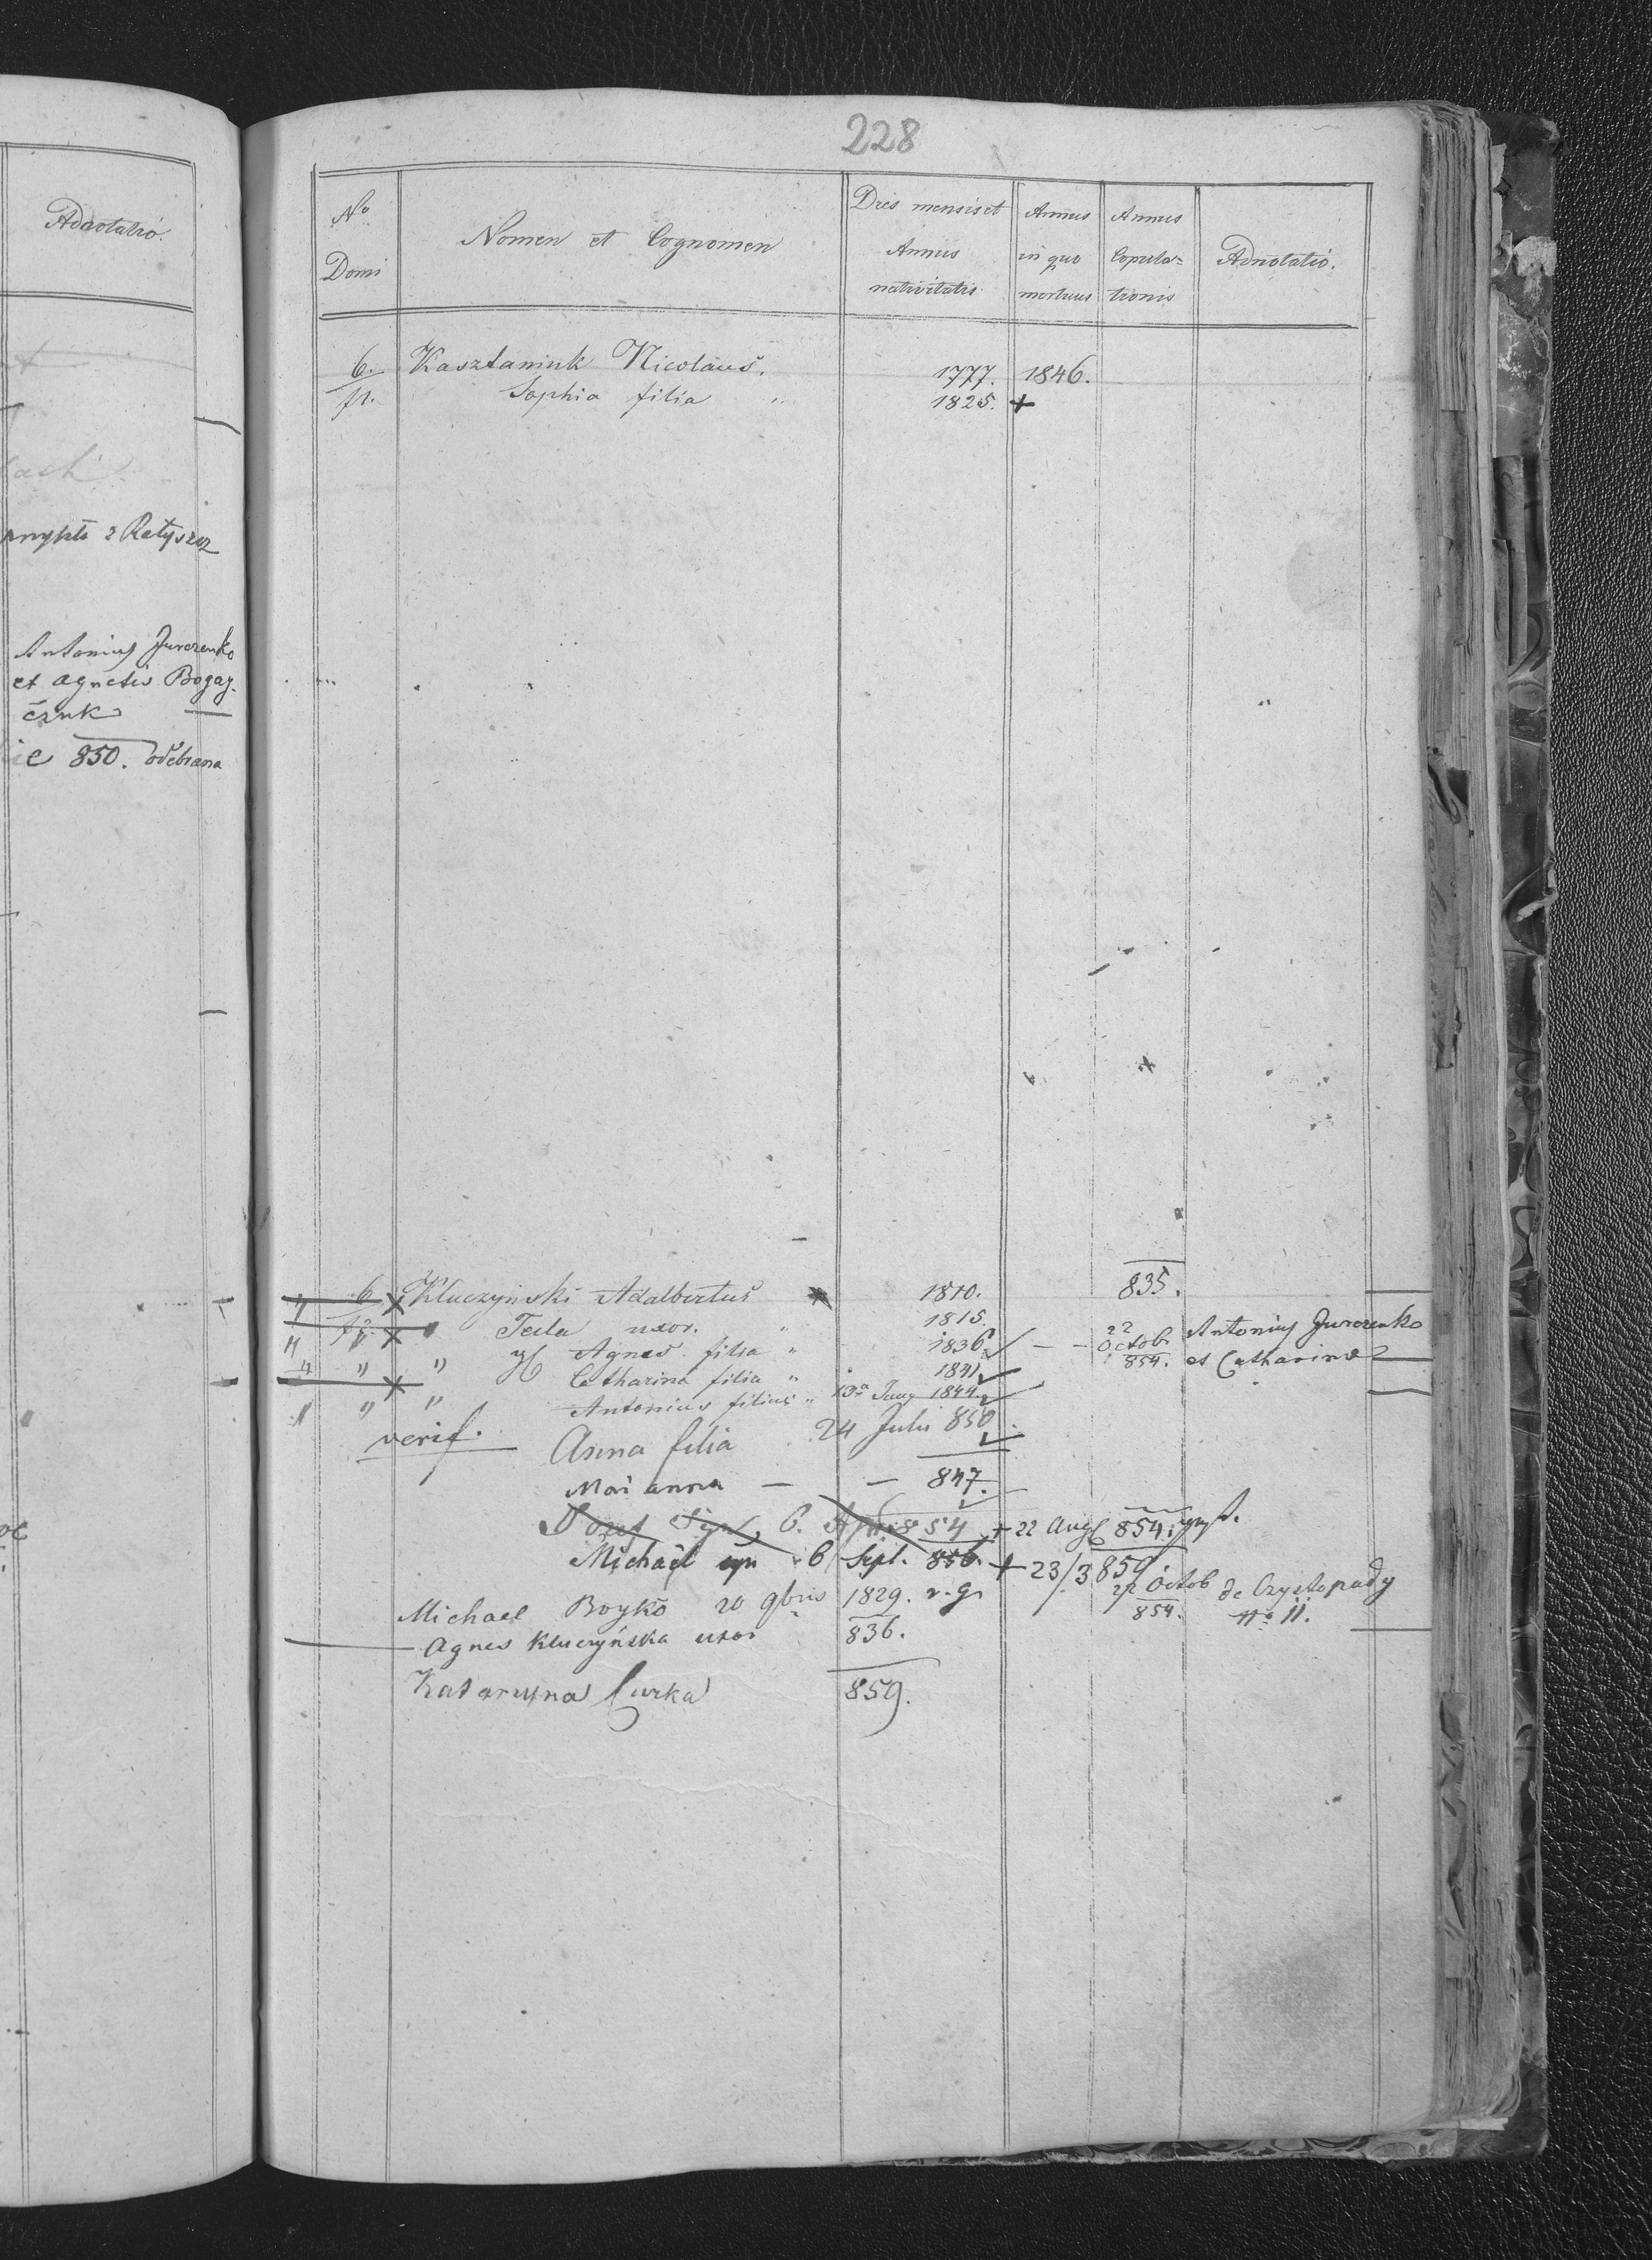 Adnotatio.
Antonius Jurczenko
et Agnetis Bogay-
czuk
850. odebrana
228
No Domi
Nomen et Cognomen
Dies mensis et Annus nativitatis
Annus in quo mortuus
Annus Copula= tionis
Adnotatio.
6. Kasztaniuk Nicolaus. 1777. 1846.
Sophia filia " 1825. +
6 Kluczynski Adalbertus 1810. 835.
Tecla uxor. " 1815.
" Agnes filia " 1836 - - 22 Octob 854. Antonius Jurczenko
" " " Catharina filia " 1841 et Catharina
" " " Antonius filius " 13a Juny 1844.
verif. Anna filia 24 Julii 850.
Marianna - - 847.
Jozef Syn 6. April 854 + 22 Aug 854.
Michael syn 6 Sept. 856. + 23/3 859
Michael Boyko 20 9bris 1829. r. g. 22 Octob 854. de Czystopady No 11.
Agnes Kluczyńska uxor 836.
Katarzyna Curka 859.